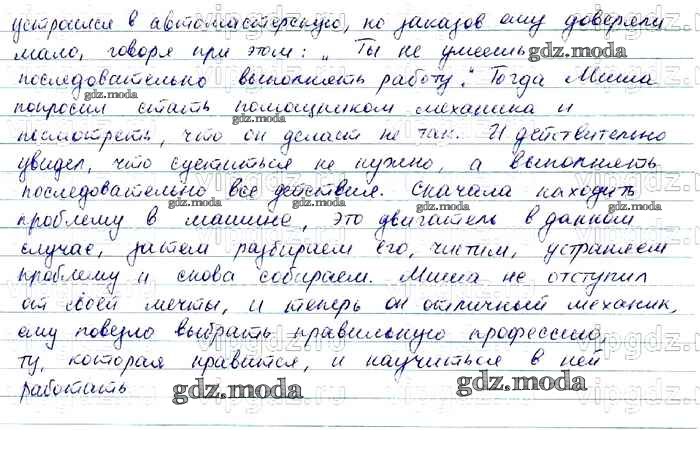 устроился в автомастерскую, но заказов ему доверяли
мало, говоря при этом: „Ты не умеешь
последовательно выполнять работу." Тогда Миша
попросил стать помощником механика и
посмотреть, что он делает не так. И действительно
увидел, что суетиться не нужно, а выполнять
последовательно все действия. Сначала находить
проблему в машине, это двигатель в данном
случае, затем разбираем его, чистим, устраняем
проблему и снова собираем. Миша не отступил
от своей мечты, и теперь он отличный механик,
ему повезло выбрать правильную профессию
ту, которая нравится, и научиться в ней
работать
gdz.moda
vipgdz.ru